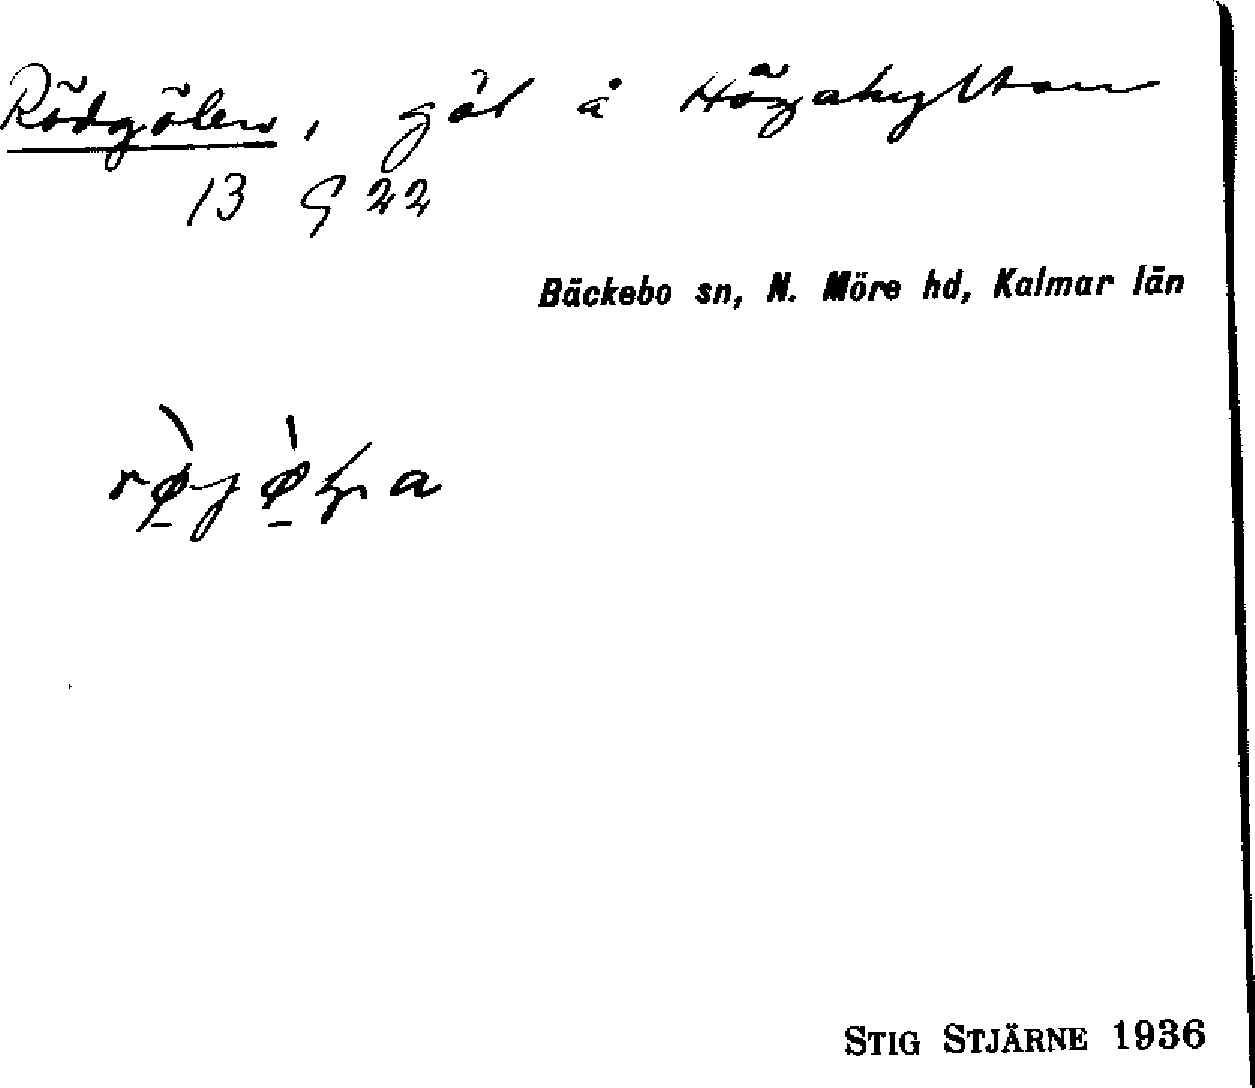 Rödgölen, göl å Högahyltan
13 G 22
Bäckebo sn, N. Möre hd, Kalmar län
STIG STJÄRNE 1936